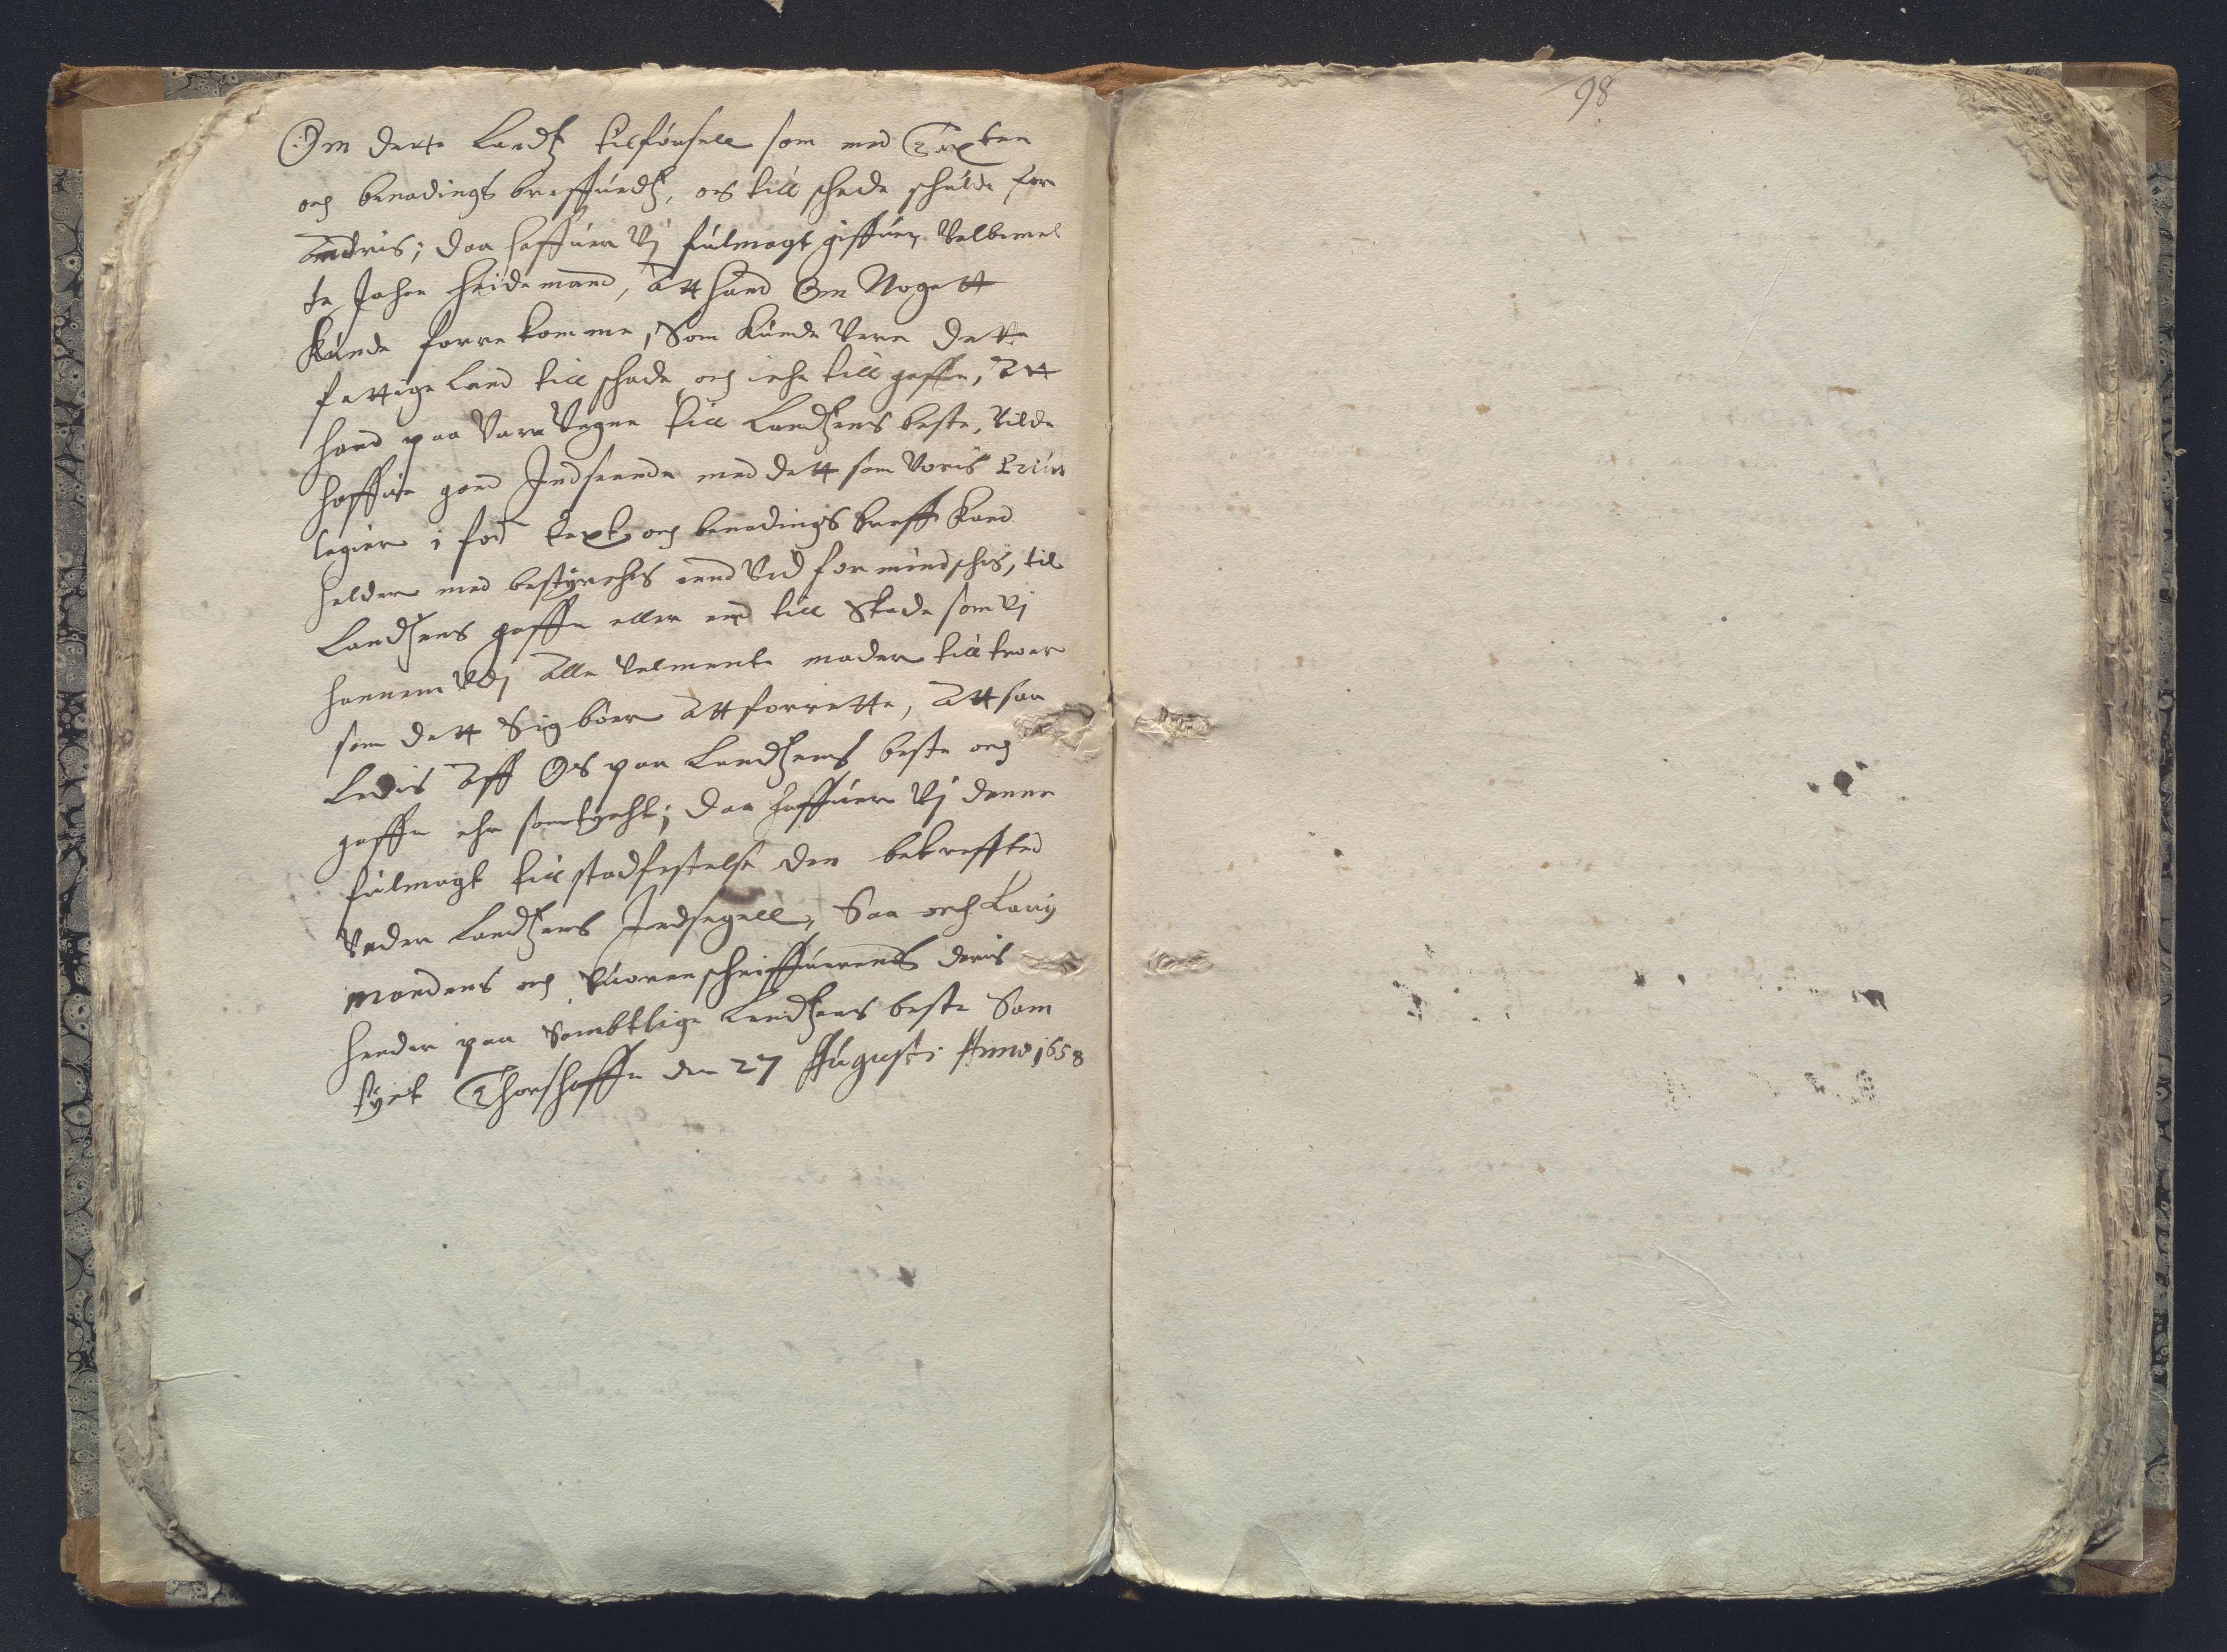 98
Om dette Landtz tilførsell som med Taxten
och benadings breffuedtz, os till schade schulde for
andris; daa haffuer Vj fulmagt giffuen Velbemel
te Johan Heidemand, Att hand Om Nogett
kunde forrekomme, Som kunde Vere dette
fattige Land till schade och iche till gaffn, Att
hand paa Vare Vegne till Landtzens beste, Vilde
haffue goed Indseende med dett som Voris Priui
legier i for Taxt och benadings breff kand
helder med bestyrches end Ved formindsches, til
Landtzens gaffn eller end till Skade som Vj
hannem Udj Alle Velmente mader till troer
som dett Sig bøer Att forrette, Att saa
Ledis Aff Os paa Landtzens beste och
gaffn ehr samtycht; daa haffuer Vj denne
fulmagt till stadfestelse den bekreffted
Under Landtzens Indsegell, Saa och Laug
mandens och Suorenschriffuerens deris
hender paa Sambtlige Landtzens beste Sam
tyct Thorshaffn den 27 Augusti Anno 1658